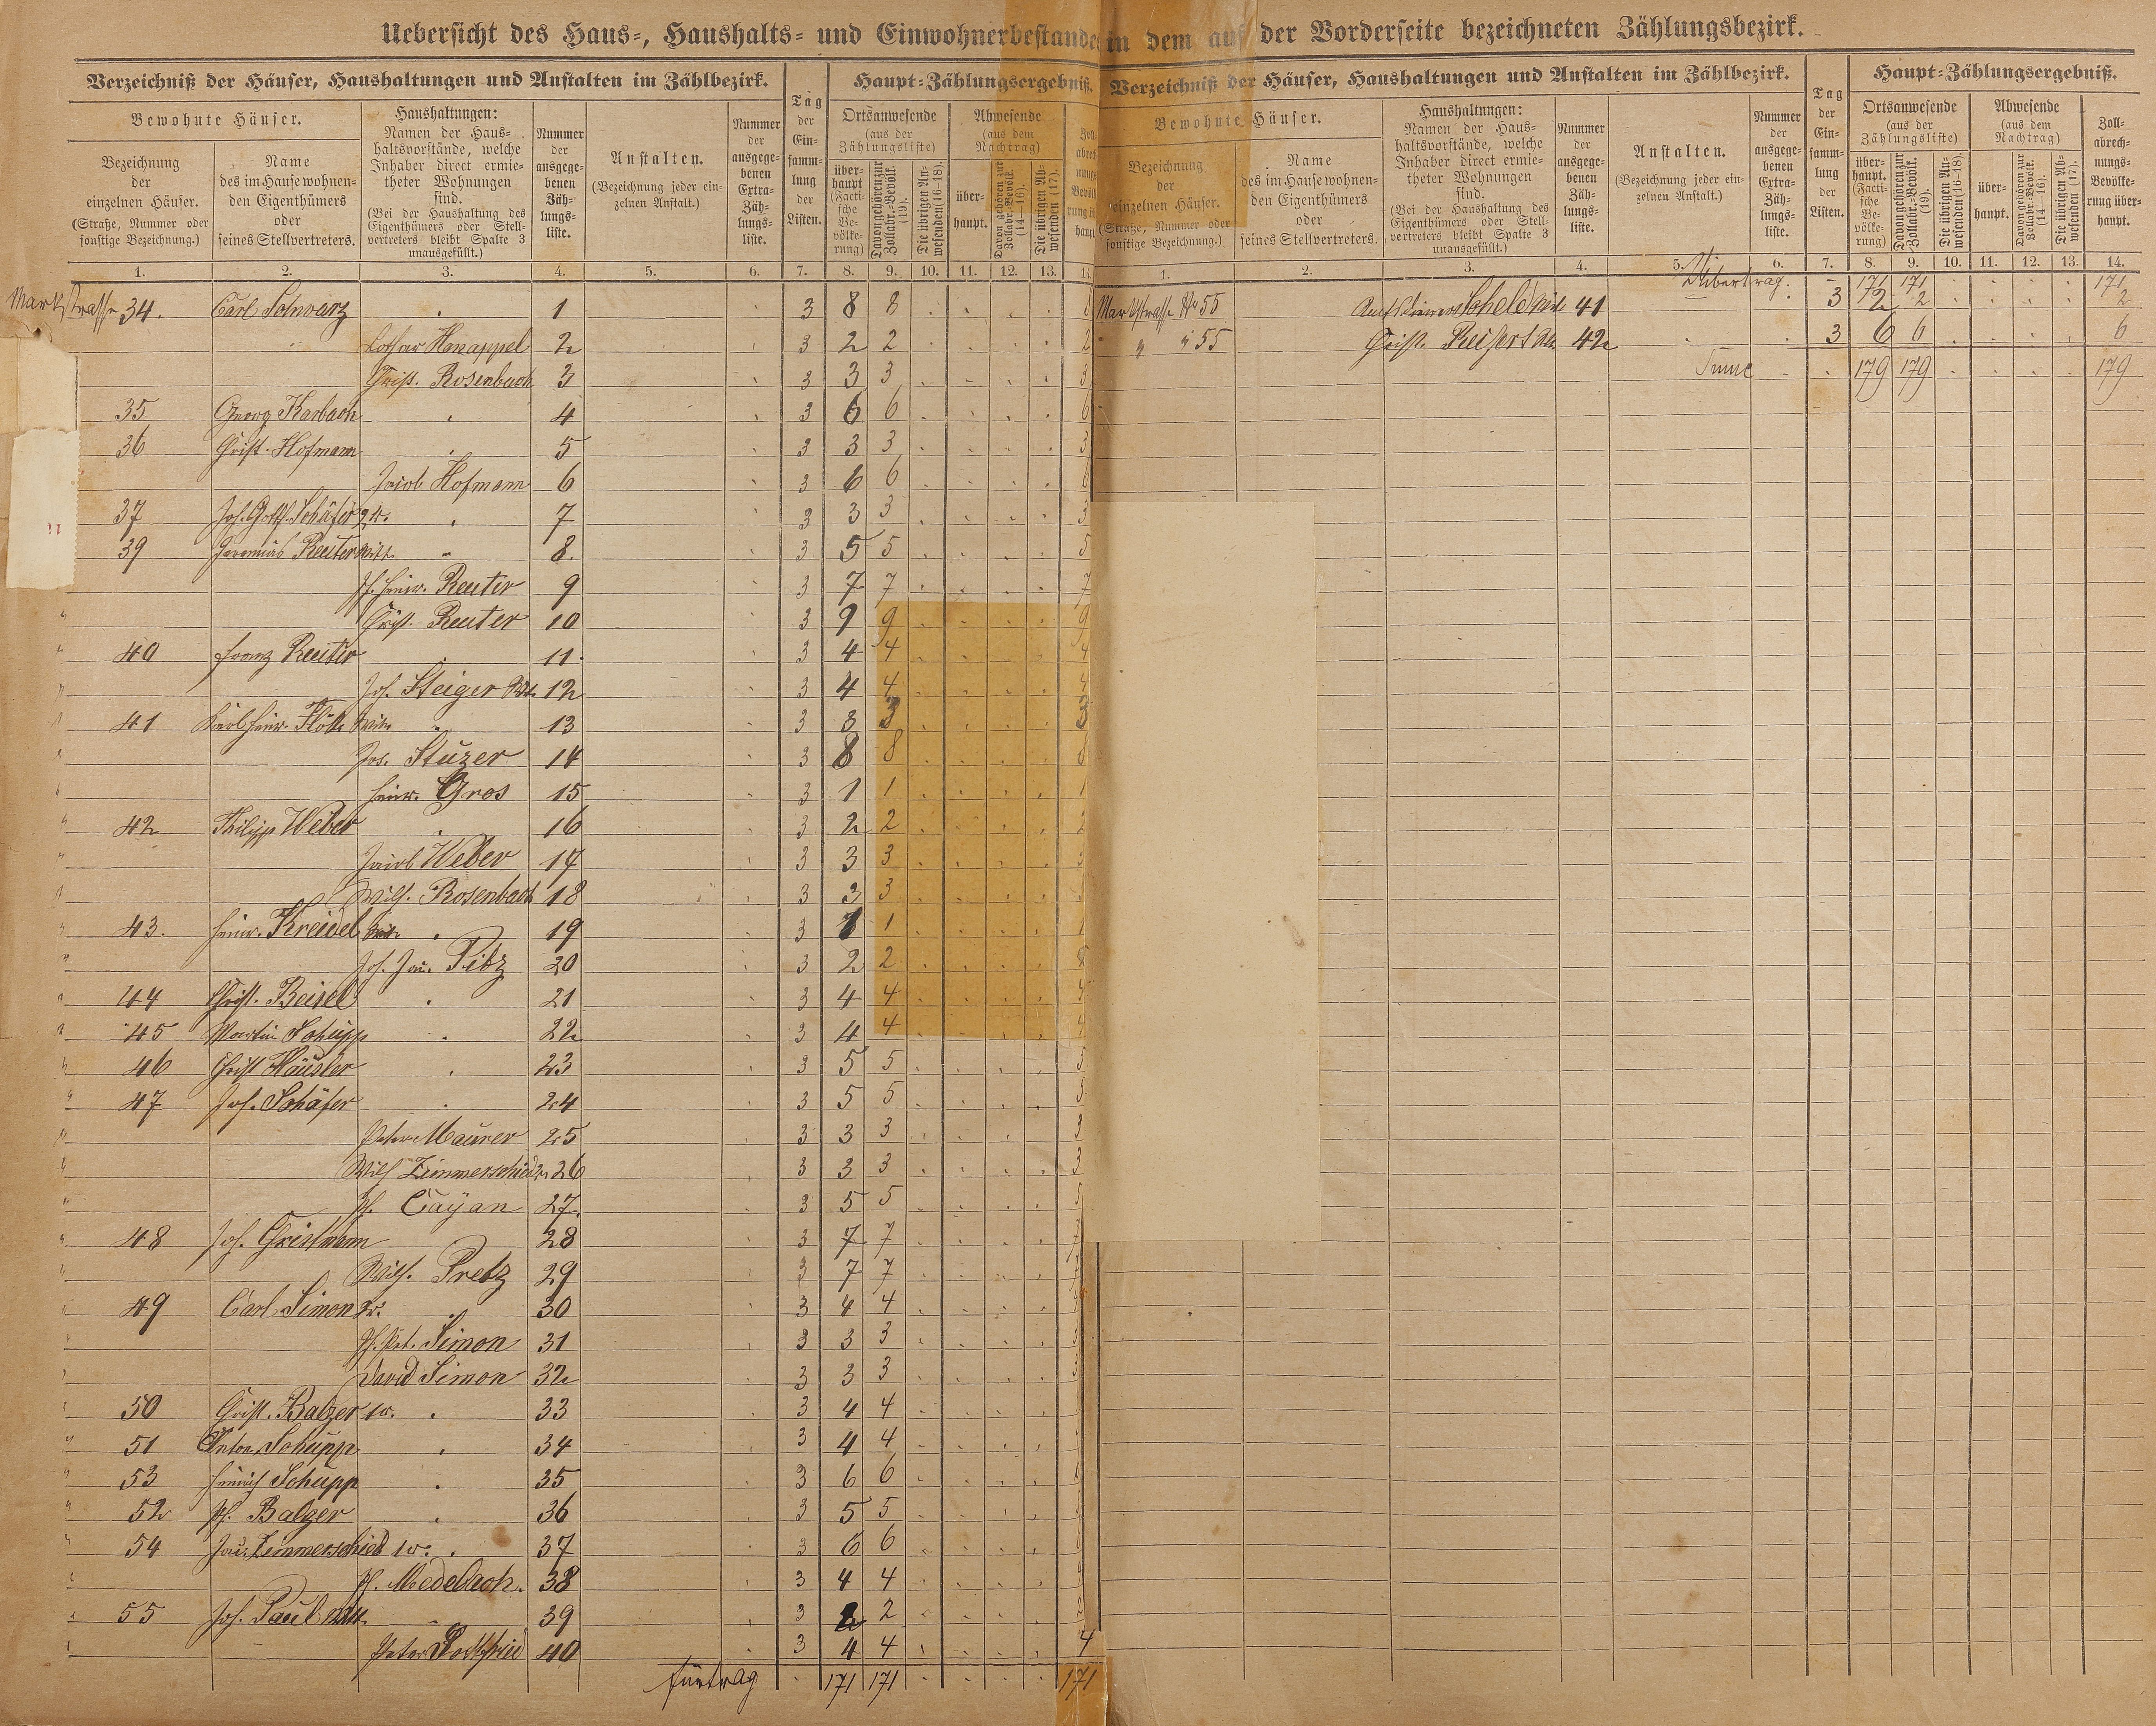 Uebersicht des Haus-, Haushalts- und Einwohnerbestandes in dem auf der Vorderseite bezeichneten Zählungsbezirk.
Verzeichniß der Häuser, Haushaltungen und Anstalten im Zählbezirk.
Tag der Ein- samm- lung der Listen.
Haupt-Zählungsergebniß.
Bewohnte Häuser.
Bezeichnung der einzelnen Häuser. (Straße, Nummer oder sonstige Bezeichnung.)
Name des im Hause wohnen- den Eigenthümers oder seines Stellvertreters.
Haushaltungen: Namen der Haus- haltsvorstände, welche Inhaber direct ermie- theter Wohnungen sind. (Bei der Haushaltung des Eigenthümers oder Stell- vertreters bleibt Spalte 3 unausgefüllt.)
Nummer der ausgege- benen Zäh- lungs- liste.
Anstalten. (Bezeichnung jeder ein- zelnen Anstalt.)
Nummer der ausgege- benen Extra- Zäh- lungs- liste.
Ortsanwesende (aus der Zählungsliste)
über- haupt (Facti- sche Be- völke- rung)
Davon gehören zur Zollabr.-Bevölk. (19).
Die übrigen An- wesenden (16-18).
Abwesende (aus dem Nachtrag)
über- haupt.
Davon gehören zur Zollabr.-Bevölk. (14-16).
Die übrigen Ab- wesenden (17).
1. 2. 3. 4. 5. 6. 7. 8. 9. 10. 11. 12. 13. 14.
Marktstrasse 34. Carl Schwarz 1 3 8 8 8
Lothar Hanappel 2 3 2 2 2
Christ. Rosenbach 3 3 3 3 3
35 Georg Karbach 4 3 6 6 6
36 Christ. Hofmann 5 3 3 3 3
Jacob Hofmann 6 3 6 6 6
37 Joh. Gottf. Schäfer 2r. 7 3 3 3 3
39 Jeremias Reuter Witt. 8. 3 5 5 5
Ph. Heinr. Reuter 9 3 7 7 7
Christ. Reuter 10 3 9 9 9
40 Franz Reuter 11. 3 4 4 4
Joh. Steiger Wt. 12 3 4 4 4
41 Karl Heinr. Flöck Witw. 13 3 3 3 3
Jos. Stuzer 14 3 8 8 8
Heinr. Gros 15 3 1 1 1
42 Philipp Weber 16 3 2 2 2
Jacob Weber 17 3 3 3 3
Wilh. Rosenbach 18 3 3 3
43. Heinr. Kreidel Witw. 19 3 1 1 1
Joh. Jac. Pitz 20 3 2 2 2
44 Christ. Beisel 21 3 4 4 4
45 Martin Schupp 22 3 4 4 4
46 Christ Häusler 23 3 5 5 5
47 Joh. Schäfer 24 3 5 5 5
Peter Maurer 25 3 3 3 3
Wilh Zimmerschied 2r 26 3 3 3 3
Ph. Cayan 27. 3 5 5 5
48 Joh. Christmann 28 3 7 7 7
Wilh. Pretz 29 3 7 7
49 Carl Simon 2r. 30 3 4 4
Ph. Pet. Simon 31 3 3 3
David Simon 32 3 3 3
50 Christ. Balzer 1r. 33 3 4 4
51 Anton Schupp 34 3 4 4
53 Heinrich Schupp 35 3 6 6
52 Ph. Balzer 36 3 5 5
54 Jac. Zimmerschied 1r. 37 3 6 6
Ph. Medebach. 38 3 4 4
55 Joh. Paul Witt. 39 3 2 2
Peter 40 3 4 4 4
Fürtrag 171 171 171
Verzeichniß der Häuser, Haushaltungen und Anstalten im Zählbezirk.
Tag der Ein- samm- lung der Listen.
Haupt-Zählungsergebniß.
Bewohnte Häuser.
Bezeichnung der einzelnen Häuser. (Straße, Nummer oder sonstige Bezeichnung.)
Name des im Hause wohnen- den Eigenthümers oder seines Stellvertreters.
Haushaltungen: Namen der Haus- haltsvorstände, welche Inhaber direct ermie- theter Wohnungen sind. (Bei der Haushaltung des Eigenthümers oder Stell- vertreters bleibt Spalte 3 unausgefüllt.)
Nummer der ausgege- benen Zäh- lungs- liste.
Anstalten. (Bezeichnung jeder ein- zelnen Anstalt.)
Nummer der ausgege- benen Extra- Zäh- lungs- liste.
Ortsanwesende (aus der Zählungsliste)
über- haupt. (Facti- sche Be- völke- rung)
Davon gehören zur Zollabr.-Bevölk. (19).
Die übrigen An- wesenden (16-18).
Abwesende (aus dem Nachtrag)
über- haupt.
Davon gehören zur Zollabr.-Bevölk. (14-16).
Die übrigen Ab- wesenden (17).
Zoll- abrech- nungs- Bevölke- rung über- haupt.
1. 2. 3. 4. 5. 6. 7. 8. 9. 10. 11. 12. 13. 14.
Übertrag. 171 171 171
Marktstrasse No 55 Scheld Wit. 41 3 2 2 2
" " 55 Christ. Reifert 42 3 6 6 6
Summe 179 179 179